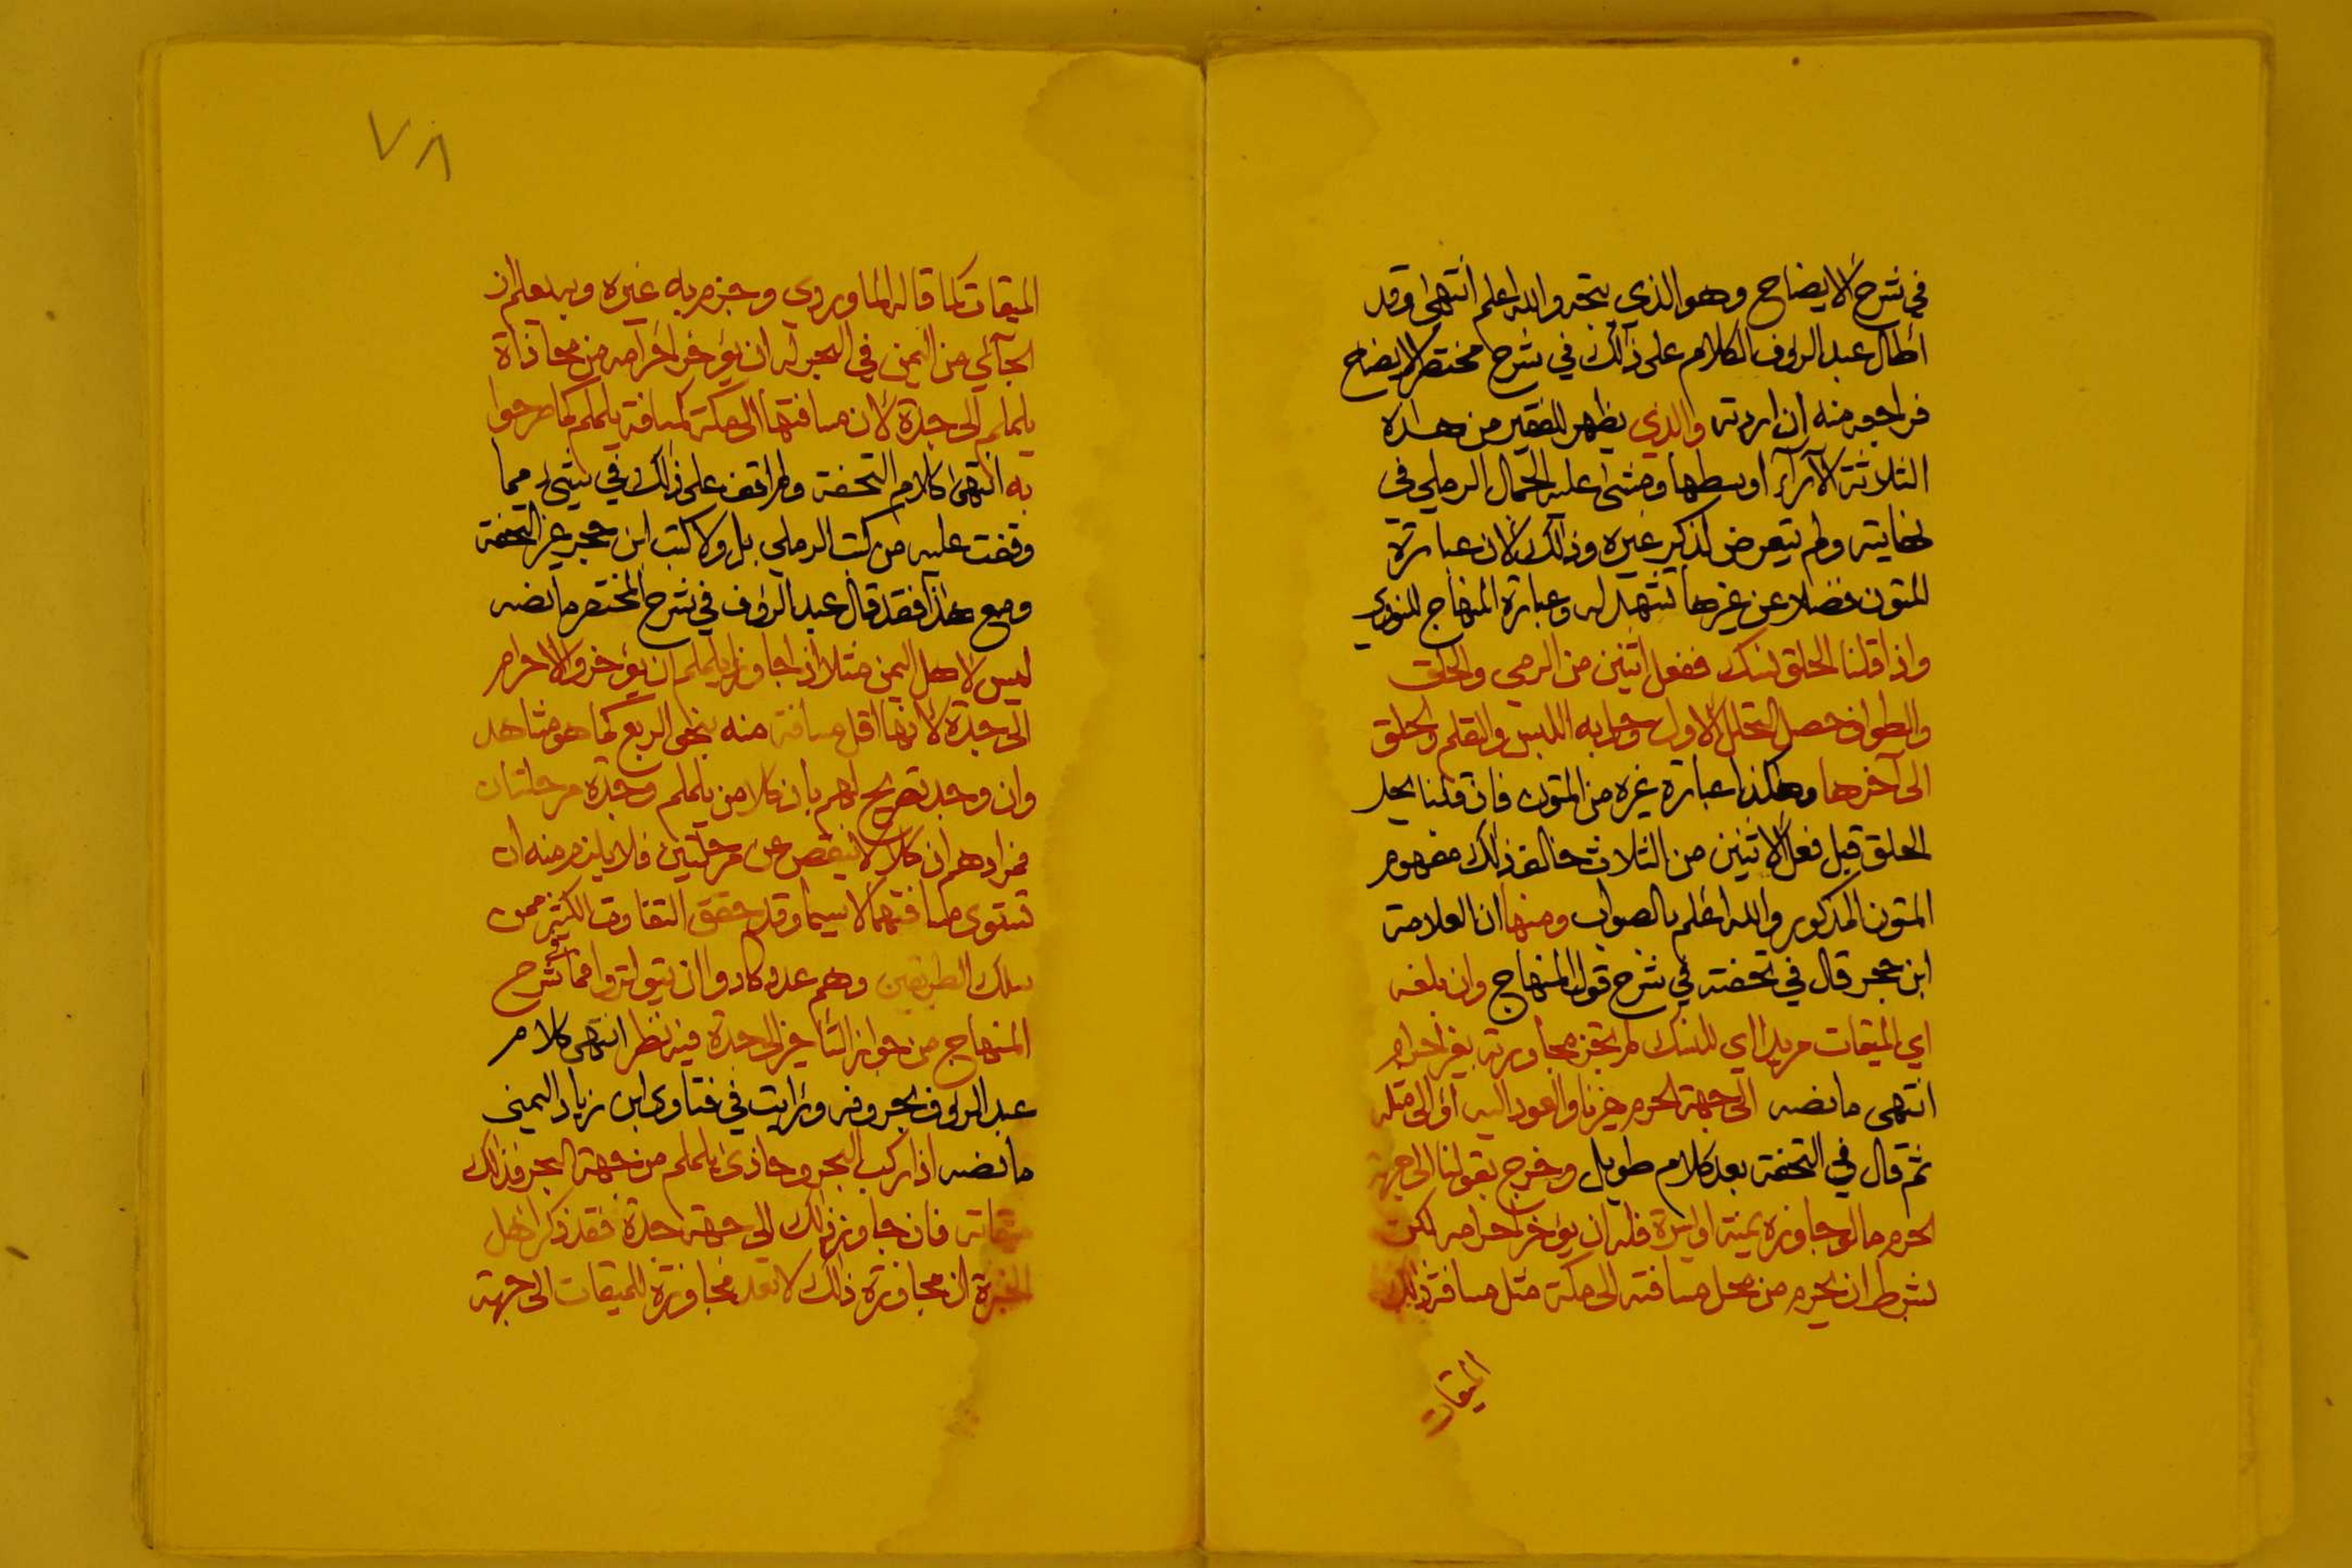 في شرح الايضاح وهو الذي يتجه والله اعلم انتهى وقد
اطال عبد الرؤف الكلام على ذلك في شرح مختصر الايضاح
فراجعه منه ان اردته والذي يظهر للفقير من هذه
الثلاثة الآراء اوسطها ومشى عليه الجمال الرملي في
نهايته ولم يتعرض لذكر غيره وذلك لان عبارة
المتون فضلا عن غيرها تشهد له وعبارة المنهاج للنووي
واذا قلنا الحلق نسك ففعل اثنين من الرمى والحلق
والطواف حصل التحلل الاول وحل به اللبس والقلم والحلق
الى آخرها وهكذا عبارة غيره من المتون فان قلنا بحل
الحلق قبل فعل الاثنين من الثلاث خالف ذلك مفهوم
المتون المذكور والله اعلم بالصواب ومنها ان العلامة
ابن حجر قال في تحفته في شرح قول المنهاج وان بلغه
اي الميقات مريدا اي للنسك لم تجز مجاوزته بغير احرام
انتهى ما نصه الى جهة الحرم غير ناو العود اليه او الى مثله
ثم قال في التحفة بعد كلام طويل وخرج بقولنا الى جهة
الحرم ما لو جاوزه يمنة او يسرة فله ان يؤخر احرامه لكن
بشرط ان يحرم من محل مسافته الى مكة مثل مسافة ذلك
الميقات
٧٨
الميقات كما قاله الماوردي وجزم به غيره وبه يعلم ان
الجآئي من اليمن في البحر له ان يؤخر احرامه من محاذاة
يلملم الى جدة لان مسافتها الى مكة كمسافة يلملم كما صرحوا
به انتهى كلام التحفة ولم اقف على ذلك في شيء مما
وقفت عليه من كتب الرملي بل ولا كتب ابن حجر غير التحفة
ومع هذا فقد قال عبد الرؤف في شرح المختصر ما نصه
ليس لاهل اليمن مثلا اذا جاوزوا يلملم ان يؤخروا الاحرام
الى جدة لانها اقل مسافة منه بنحو الربع كما هو مشاهد
وان وجد تصريح لهم بان كلا من يلملم وجدة مرحلتان
فمرادهم ان كلا لا ينقص عن مرحلتين فلا يلزم منه ان
تستوى مسافتهما لا سيما وقد حقق التفاوت الكثير ممن
سلك الطريقين وهم عدد كادوا ان يتواتروا فما في شرح
المنهاج من جواز التأخير الى جدة فيه نظر انتهى كلام
عبد الرؤف بحروفه ورأيت في فتاوى ابن زياد اليمني
ما نصه اذا ركب البحر وحاذى يلملم من جهة البحر فذلك
ميقاته فان جاوز ذلك الى جهة جدة فقد ذكر اهل
الخبرة ان مجاوزة ذلك لا تعد مجاوزة للميقات الى جهة